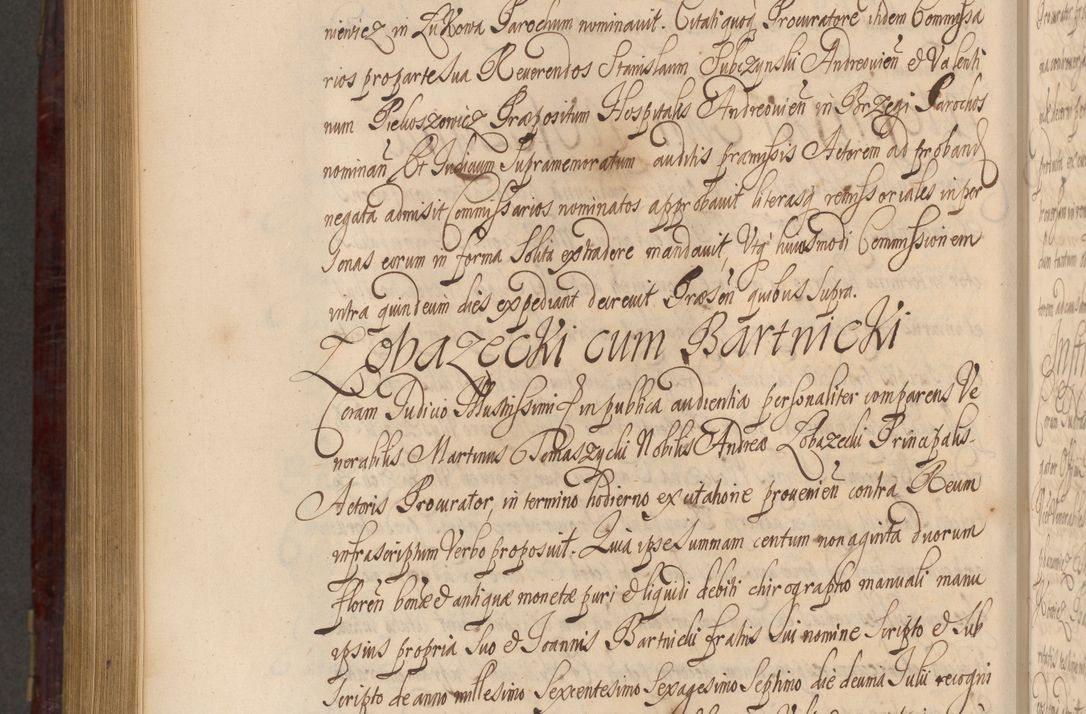 niewicz in Zukowa Parochum nominavit. Citatiquoq Procuratore itidem Commissa
rios pro parte sua Reverendos Stanislaum Jubczynski Andreovien et Valenti
num Piekoszowicz Præpositum Hospitalis Andreovien in Borzegi Parochos
nominan Et Judicium supramemoratum auditis præmissis Actorem ad proband
negata admisit Commissarios nominatos approbavit literasq remissoriales in per
sonas eorum in forma solita extradere mandavit, Utq huiusmodi Commissionem
intra quindecim dies expediant decrevit Præsen quibus supra.
Zobazecki cum Bartnicki
Coram Judicio Illustrissimi etc in publica audientia personaliter comparens Ve
nerabilis Martinus Tomaszycki Nobilis Andreæ Zobazecki Principalis
Actoris Procurator, in termino hodierno ex citatione provenien contra Reum
infrascriptum Verbo proposuit. Quia ipse summam centum nonaginta duorum
Floren bonæ et antiquæ monetæ puri et liquidi debiti chirographo manuali manu
ipsius propria suo et Joannis Bartnicki fratris sui nomine scripto et sub
scripto de anno millesimo sexcentesimo sexagesimo septimo die decima Julii recogni